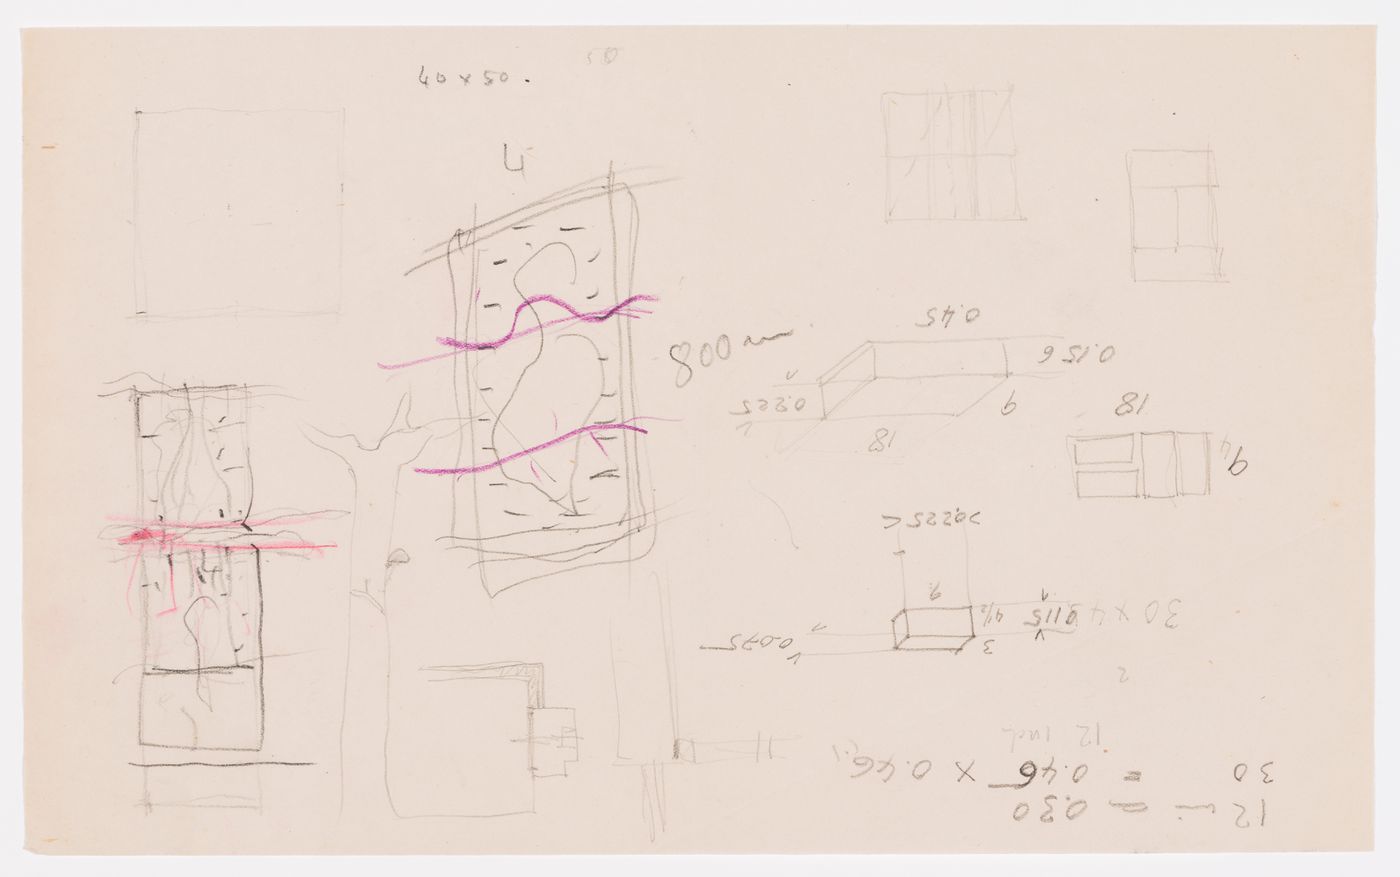 40 x 50.
4
800 m
0.45
0.15 6
0.225
9
18
18
9
4
>0.225<
9
4½
0.115
3
0.075
30 x 4
2
12 inch
30 = 0.46 x 0.46
12 in = 0.30